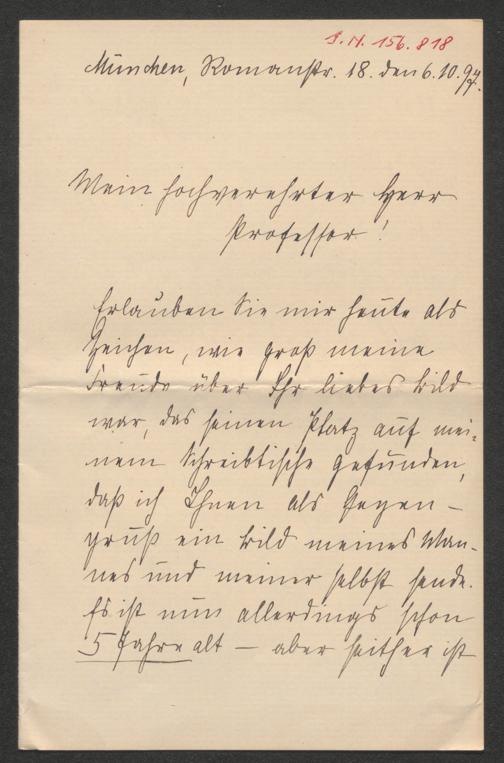 J.N. 156.818
München, Romanstr. 18. den 6.10.97.
Mein hochverehrter Herr
Professor!
Erlauben Sie mir heute als
Zeichen, wie groß meine
Freude über Ihr liebes Bild
war, das seinen Platz auf mei-
nem Schreibtische gefunden,
daß ich Ihnen als Gegen-
gruß ein Bild meines Man-
nes und meiner selbst sende.
Es ist nun allerdings schon
5 Jahre alt – aber seither ist